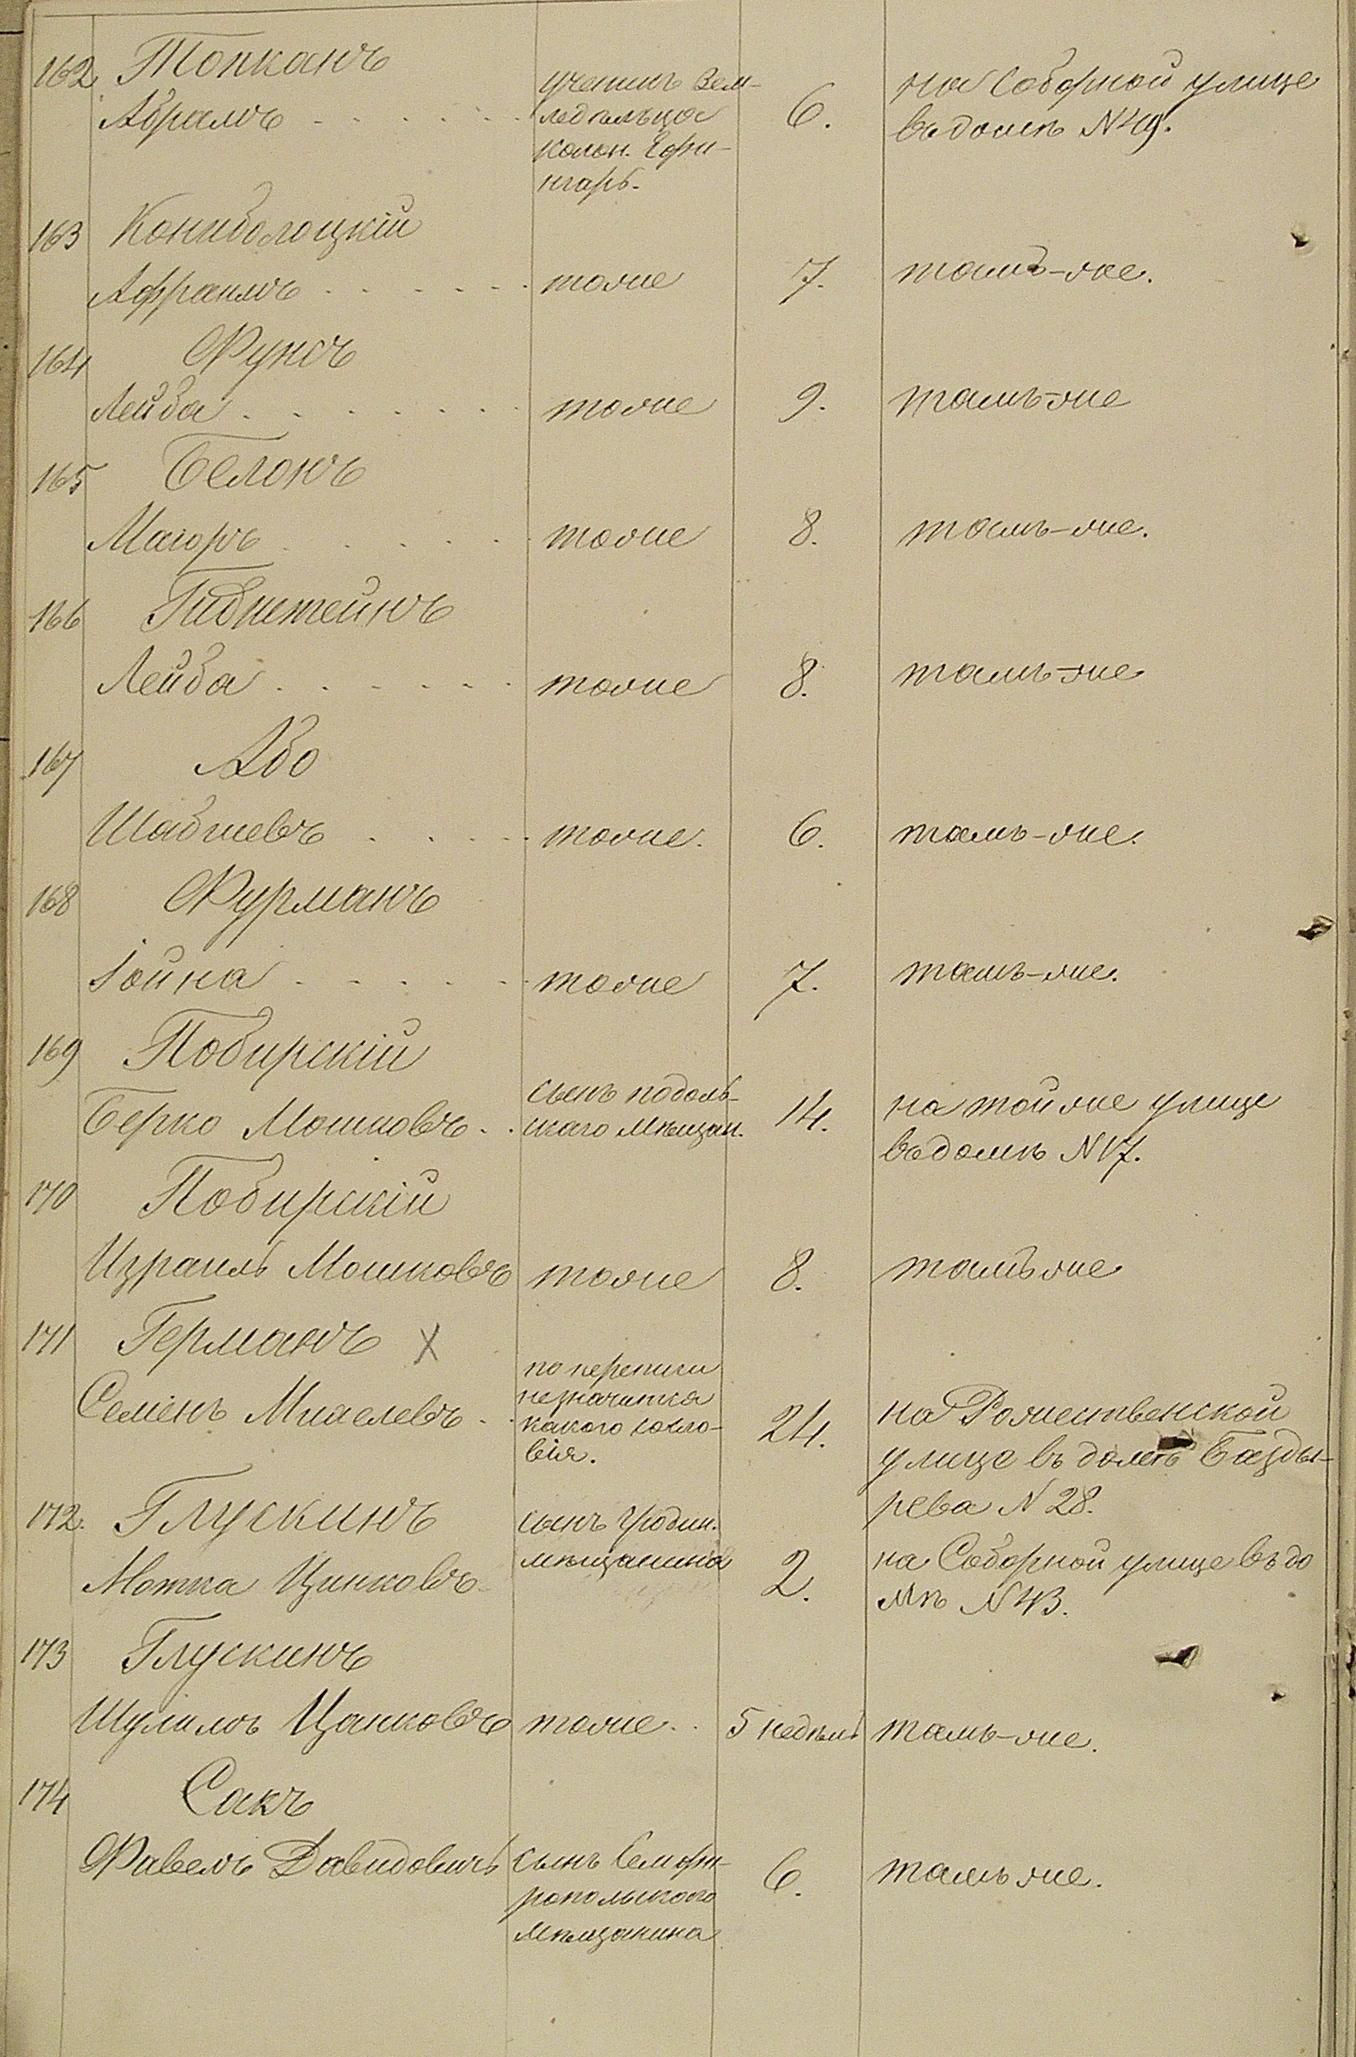 162 Топканъ
Абрамъ
ученикъ Зем-
ледѣльца
колон. Ефи-
нгаръ.
6.
на Соборной улице
въ домѣ N 49.
163 Конибологцкій
Афраимъ тоже 7. тамъ-же.
164 Фуксъ
Лейба тоже 9. тамъ-же
165 Белонъ
Маіоръ тоже 8. тамъ-же.
166 Гибштейнъ
Лейба тоже 8. тамъ-же
167 Або
Шабшевъ тоже. 6. тамъ-же.
168 Фурманъ
Іойна тоже 7. тамъ-же.
169 Побирскій
Берко Мошковъ
сынъ подоль-
скаго мѣщан.
14.
на той же улице
въ домѣ N 17.
170 Побирскій
Израиль Мошковъ тоже 8. тамъ же
171 Германъ X
Семенъ Михелевъ
по переписи
незначится
какого сосло-
вія.
24.
на Рожественской
улице въ домѣ Базды-
рева N 28.
172. Глускинъ
Мотка Цинковъ
сынъ Гродин.
мѣщанина
2.
на Соборной улице въ до
мѣ N 43.
173 Глускинъ
Шулимъ Цанковъ тоже 5 недѣль тамъ-же.
174 Сакъ
Фавелъ Давидовичъ
сынъ Симфи-
ропольскаго
мѣщанина
6.
тамъ же.